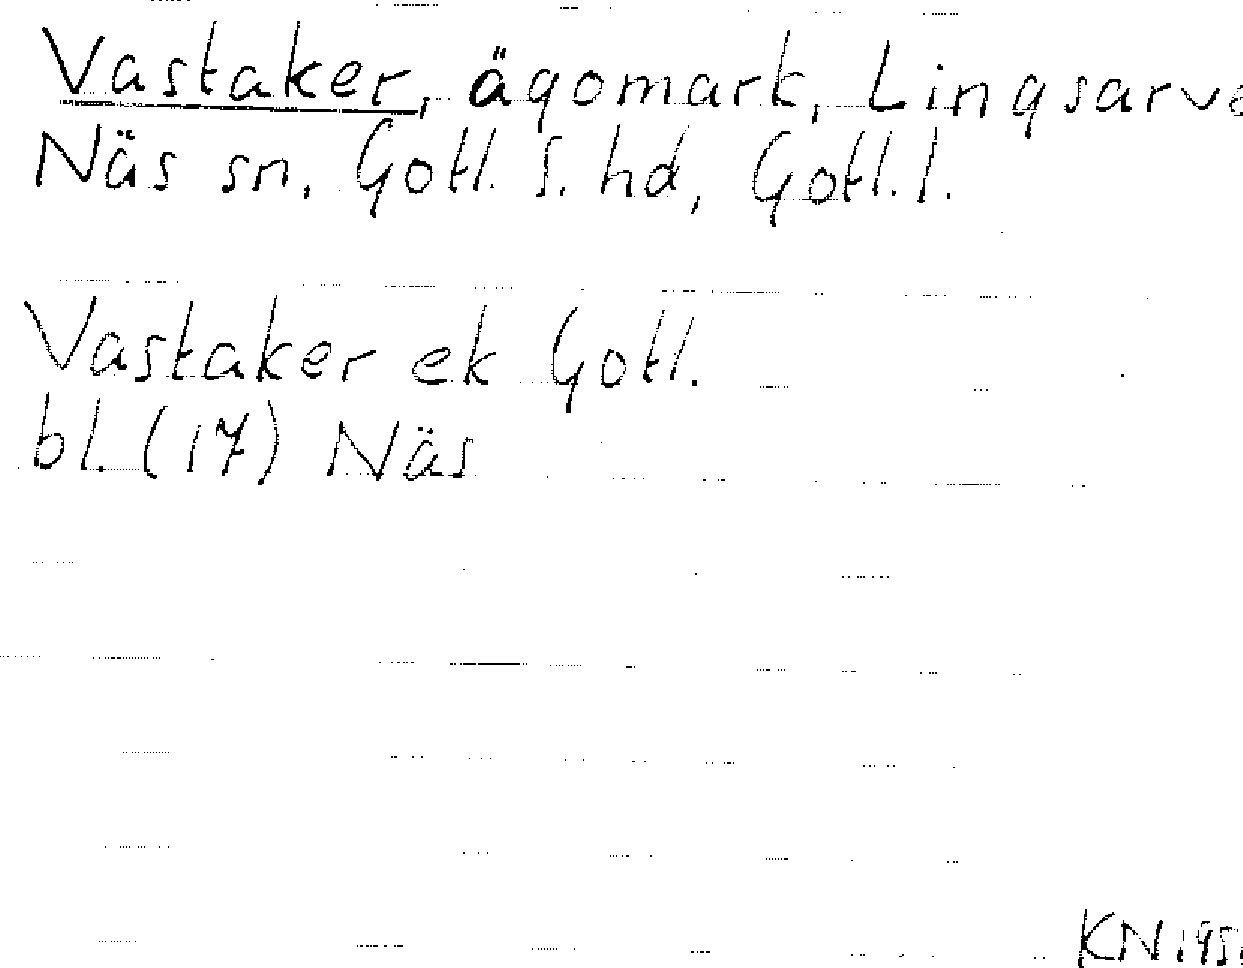 Vastaker, ägomark, Lingsarve
Näs sn. Gotl. S. hd, Gotl. l.
Vastaker ek Gotl.
bl. (17) Näs
KN 1951